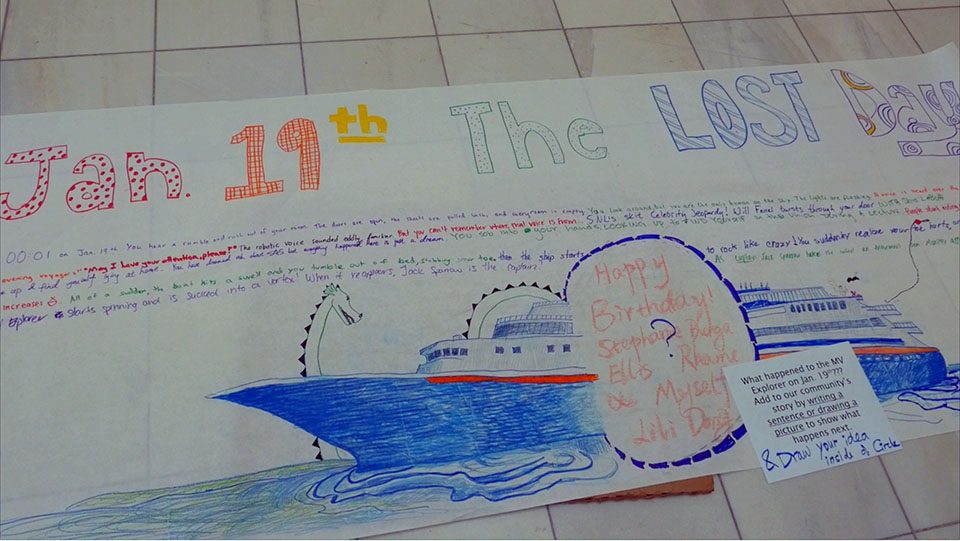 Jan. 19th The LOST Day
00:01 on Jan. 19th You hear a rumble and rush out of your room. The doors are open, the sheets are pulled back, and everyroom is empty. You look around but you are the only human on the ship. The lights are flashing. A voice is heard over the
evening voyagers." "May I have your attention, please?" The robotic voice sounded oddly familiar. But you can't remember where that voice is from... SNL's skit Celebrity Jeopardy! Will Ferrel bursts through your door
up & find yourself lying at home. You have dreamed of what happened here is just a dream. YOU SOB INTO YOUR HANDS, LOOKING UP TO FIND YOURSELF
increases All of a sudden, the boat hits a swell and you tumble out of bed, stubbing your toe. then the ship starts to rock like crazy! You suddenly realize your toe hurts, and
Explorer starts spinning and is sucked into a vortex! When it reappears, Jack Sparrow is the captain! As captain Jack Sparrow takes the wheel
Happy
Birthday!
Stephanie
Ellis Rhame
Myself
Lili Dong
?
What happened to the MV
Explorer on Jan. 19th??
Add to our community's
story by writing a
sentence or drawing a
picture to show what
happens next.
& Draw your idea
inside of Circle